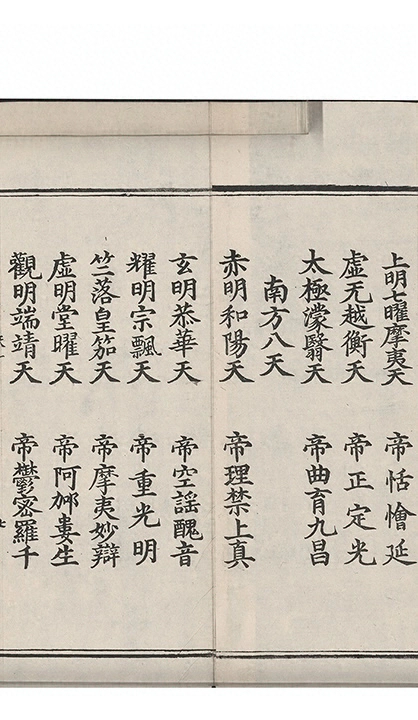 上明七曜摩夷天　帝恬憺延
虛无越衡天　帝正定光
太極濛翳天　帝曲育九昌
南方八天
赤明和陽天　帝理禁上真
玄明恭華天　帝空謠醜音
耀明宗飄天　帝重光明
竺落皇笳天　帝摩夷妙辯
虛明堂曜天　帝阿𨚗婁生
觀明端靖天　帝鬱密羅千